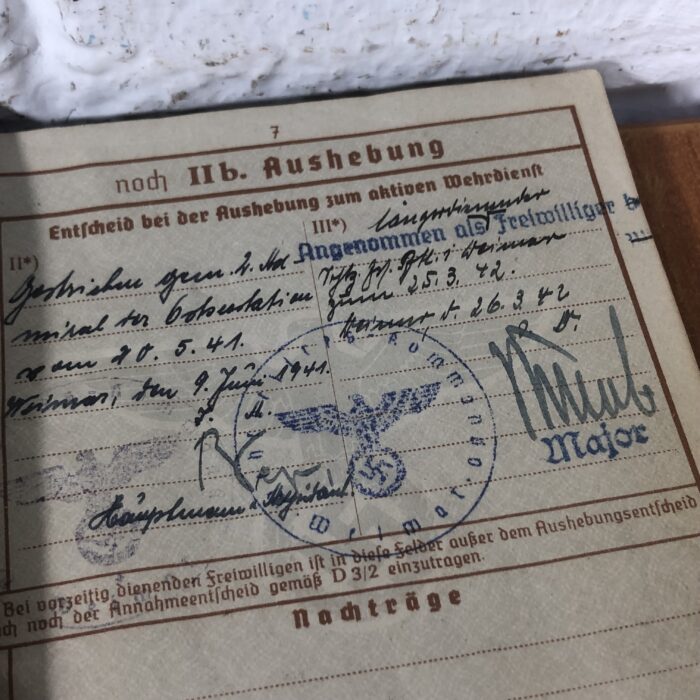 7
noch IIb. Aushebung
Entscheid bei der Aushebung zum aktiven Wehrdienst
II*)
Gestrichen gem. 2. Ad
miral der Ostseestation
vom 20. 5. 41.
Weimar, den 9. Juni 1941.
Hauptmann
III*)
längerdienender
Angenommen als Freiwilliger
Weimar
zum 25.3.42.
Weimar, d. 26.3.42
Major
Wehrbezirkskommando
Weimar
Bei vorzeitig dienenden Freiwilligen ist in diese Felder außer dem Aushebungsentscheid
noch der Annahmeentscheid gemäß D 3/2 einzutragen.
Nachträge